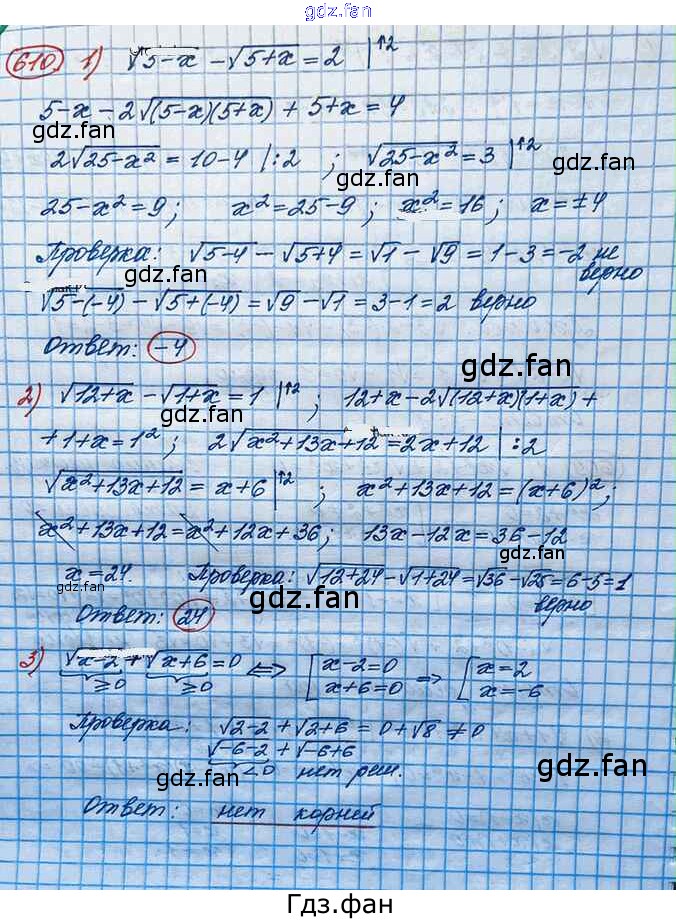 gdz.fan
610. 1) √5-x - √5+x = 2 |↑2
5-x-2√(5-x)(5+x) + 5+x=4
gdz.fan
2√25-x² = 10-4 |:2 ; √25-x² = 3 |↑2
gdz.fan
25-x²=9; x²=25-9; x²=16; x=±4
Проверка: √5-4 - √5+4 = √1 - √9 = 1-3=-2 не верно
gdz.fan
√5-(-4) - √5+(-4) = √9 - √1 = 3-1=2 верно
Ответ: -4
gdz.fan
2) √12+x - √1+x = 1 |↑2 ; 12+x-2√(12+x)(1+x) +
gdz.fan
+1+x=1² ; 2√x²+13x+12 = 2x+12 |:2
√x²+13x+12 = x+6 |↑2 ; x²+13x+12=(x+6)²;
gdz.fan
x²+13x+12=x²+12x+36; 13x-12x=36-12
gdz.fan
x=24. Проверка: √12+24 - √1+24 = √36 - √25 = 6-5=1 верно
gdz.fan
gdz.fan
Ответ: 24
3) √x-2 + √x+6 = 0 ⟺ [x-2=0 x+6=0 ⇒ [x=2 x=-6
≥0 ≥0
gdz.fan
Проверка: √2-2 + √2+6 = 0+√8 ≠ 0
√-6-2 + √-6+6
<0 нет реш.
gdz.fan
gdz.fan
Ответ: нет корней
gdz.fan
Гдз.фан